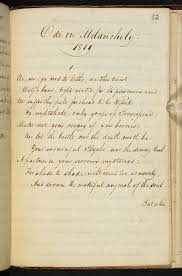 Ode on Melancholy.
1819
1
No, no go not to lethe, neither twist
Wolf's bane, tight rooted, for its poisonous wine
Nor suffer thy pale forehead to be kiss'd
By nightshade, ruby grape of Proserpine;
Make not your rosary of yew-berries
Nor let the beetle nor the death-moth be
Your mournful Psyche nor the downy owl
A partner in your sorrow's mysteries;
For shade to shade will come too drowsily,
And drown the wakeful anguish of the soul
But when